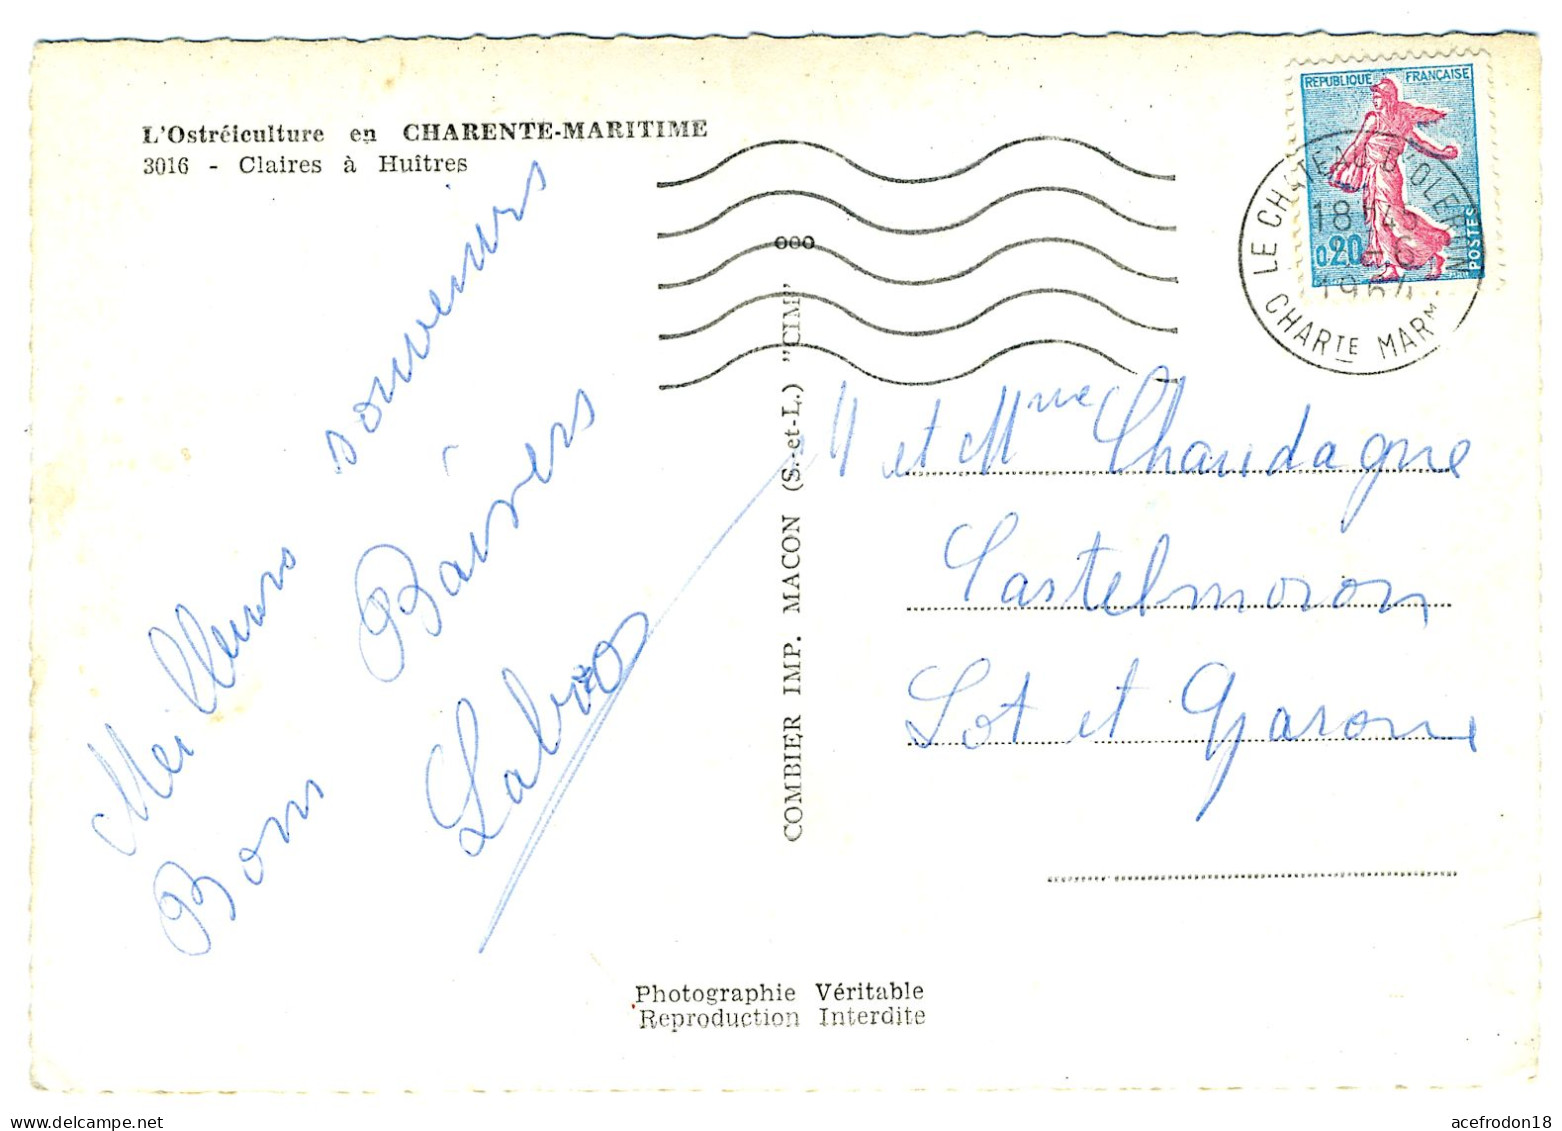 L'Ostréiculture en CHARENTE-MARITIME
3016 - Claires à Huîtres
REPUBLIQUE FRANÇAISE
0,20
POSTES
LE CHATEAU D'OLERON
18 H 45
1964
CHARTE MARME
Meilleurs souvenirs
Bons Baisers
M et Mme Chaudagne
Castelmoron
Lot et Garonne
ooo
COMBIER IMP. MACON (S.-et-L.) "CIM"
Photographie Véritable
Reproduction Interdite
acefrodon18